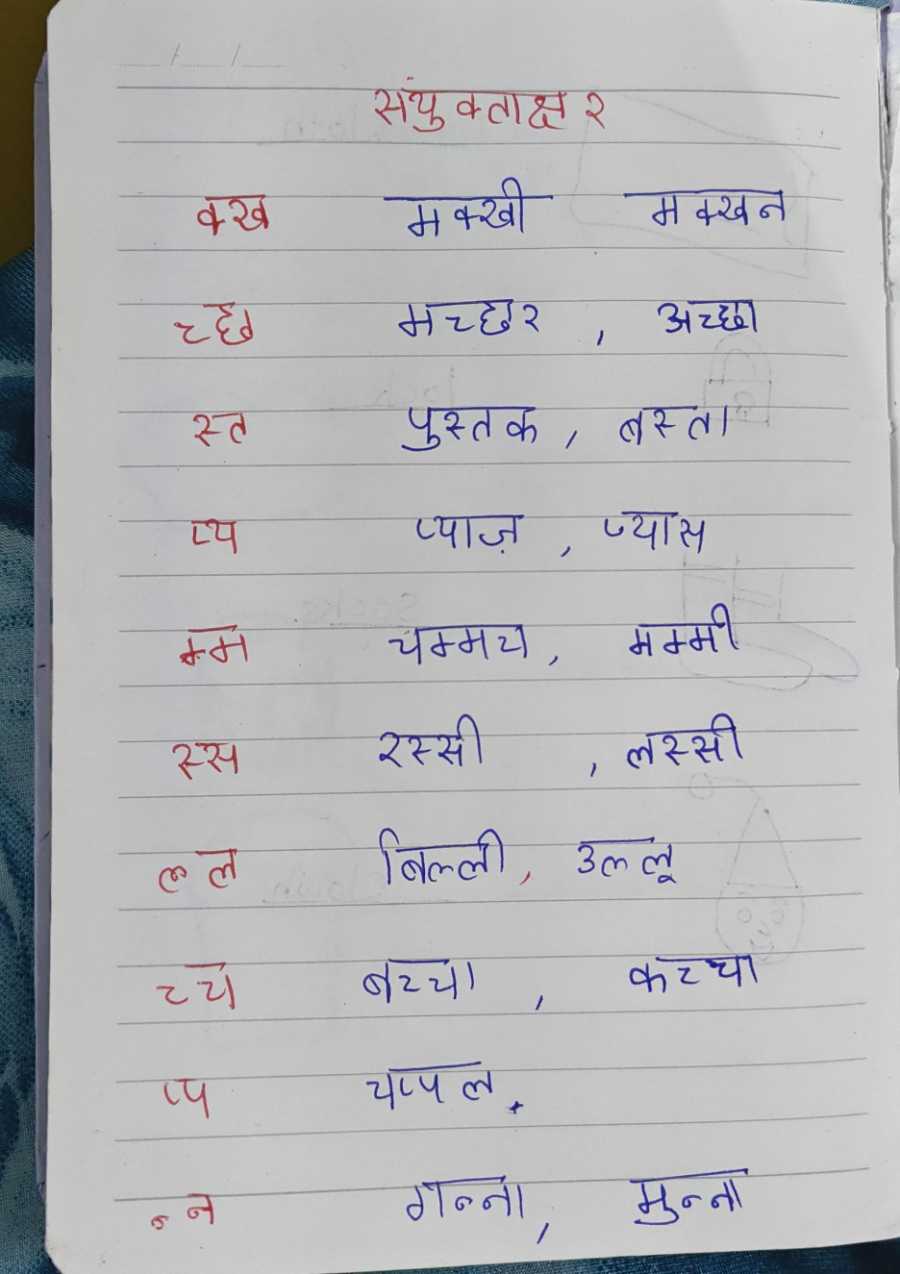 संयुक्ताक्षर
क्ख मक्खी मक्खन
च्छ मच्छर , अच्छा
स्त पुस्तक , बस्ता
प्य प्याज़ , प्यास
म्म चम्मच , मम्मी
स्स रस्सी , लस्सी
ल्ल बिल्ली, उल्लू
च्च बच्चा , कच्चा
प्प चप्पल .
न्न गन्ना, मुन्ना